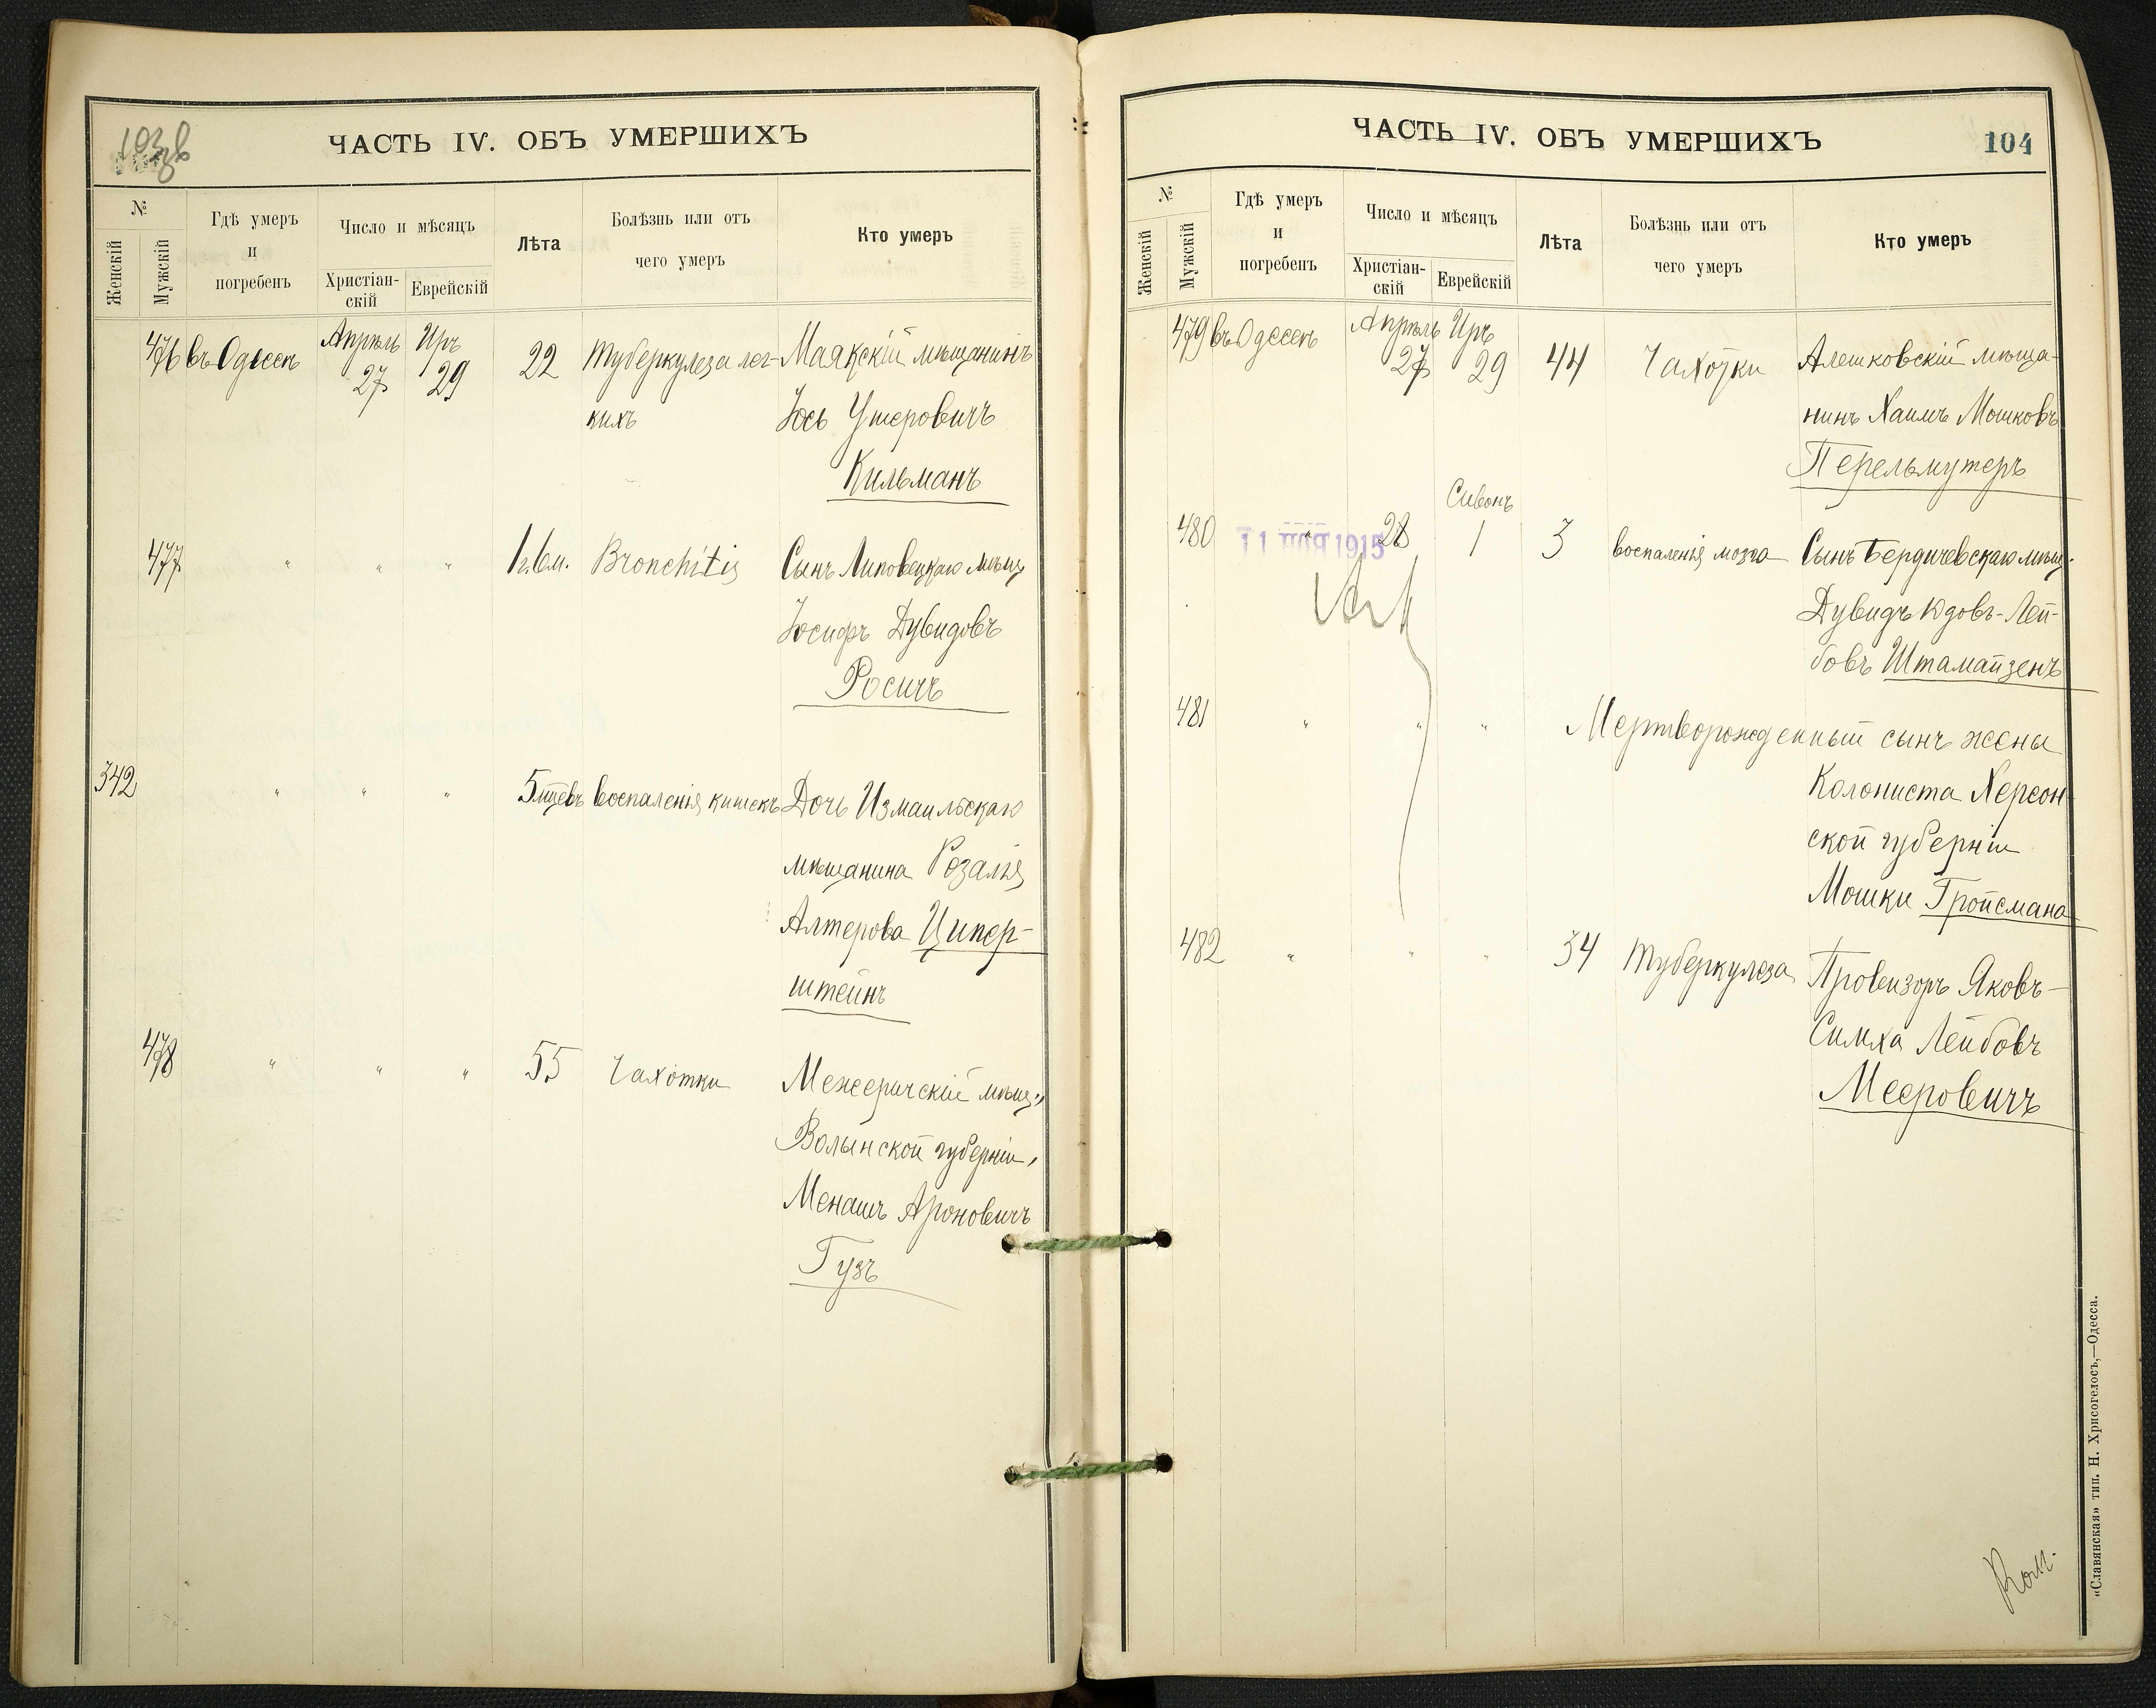 103об
ЧАСТЬ IV. ОБЪ УМЕРШИХЪ
№
Женскій
Мужскій
Гдѣ умеръ
и
погребенъ
Число и мѣсяцъ
Христіан-
скій
Еврейскій
Лѣта
Болѣзнь или отъ
чего умеръ
Кто умеръ
476 въ Одессѣ Апрѣль 27 Іиръ 29 22 Туберкулеза лег- Маякскій мѣщанинъ
кихъ Іось Ушеровичъ
Кильманъ
477 " " " 1 г. 6 м. Bronchitis Сынъ Липовецкаго мѣщ.
Іосифъ Дувидовъ
Росичъ
342 " " " 5 мцевъ воспаленія кишекъ Дочь Измаильскаго
мѣщанина Розалія
Алтерова Ципер-
штейнъ
478 " " " 55 Чахотки Межеричскій мѣщ.,
Волынской губерніи,
Менашъ Ароновичъ
Гузъ
ЧАСТЬ IV. ОБЪ УМЕРШИХЪ
104
№
Женскій
Мужскій
Гдѣ умеръ
и
погребенъ
Число и мѣсяцъ
Христіан-
скій
Еврейскій
Лѣта
Болѣзнь или отъ
чего умеръ
Кто умеръ
479 въ Одессѣ Апрѣль 27 Іиръ 29 44 Чахотки Алешковскій мѣща-
нинъ Хаимъ Мошковъ
Перельмутеръ
Сивонъ
480 " 28 1 3 воспаленія мозга Сынъ Бердичевскаго мѣщ.
11 НОЯ 1915
Дувидъ Юдовъ-Лей-
бовъ Штамайзенъ
481 " " " Мертворожденный сынъ жены
Колониста Херсон-
ской губерніи
Мошки Гройсмана
482 " " " 34 Туберкулеза Провизоръ Яковъ-
Симха Лейбовъ
Мееровичъ
«Славянская» тип. Н. Хрисогелосъ,—Одесса.